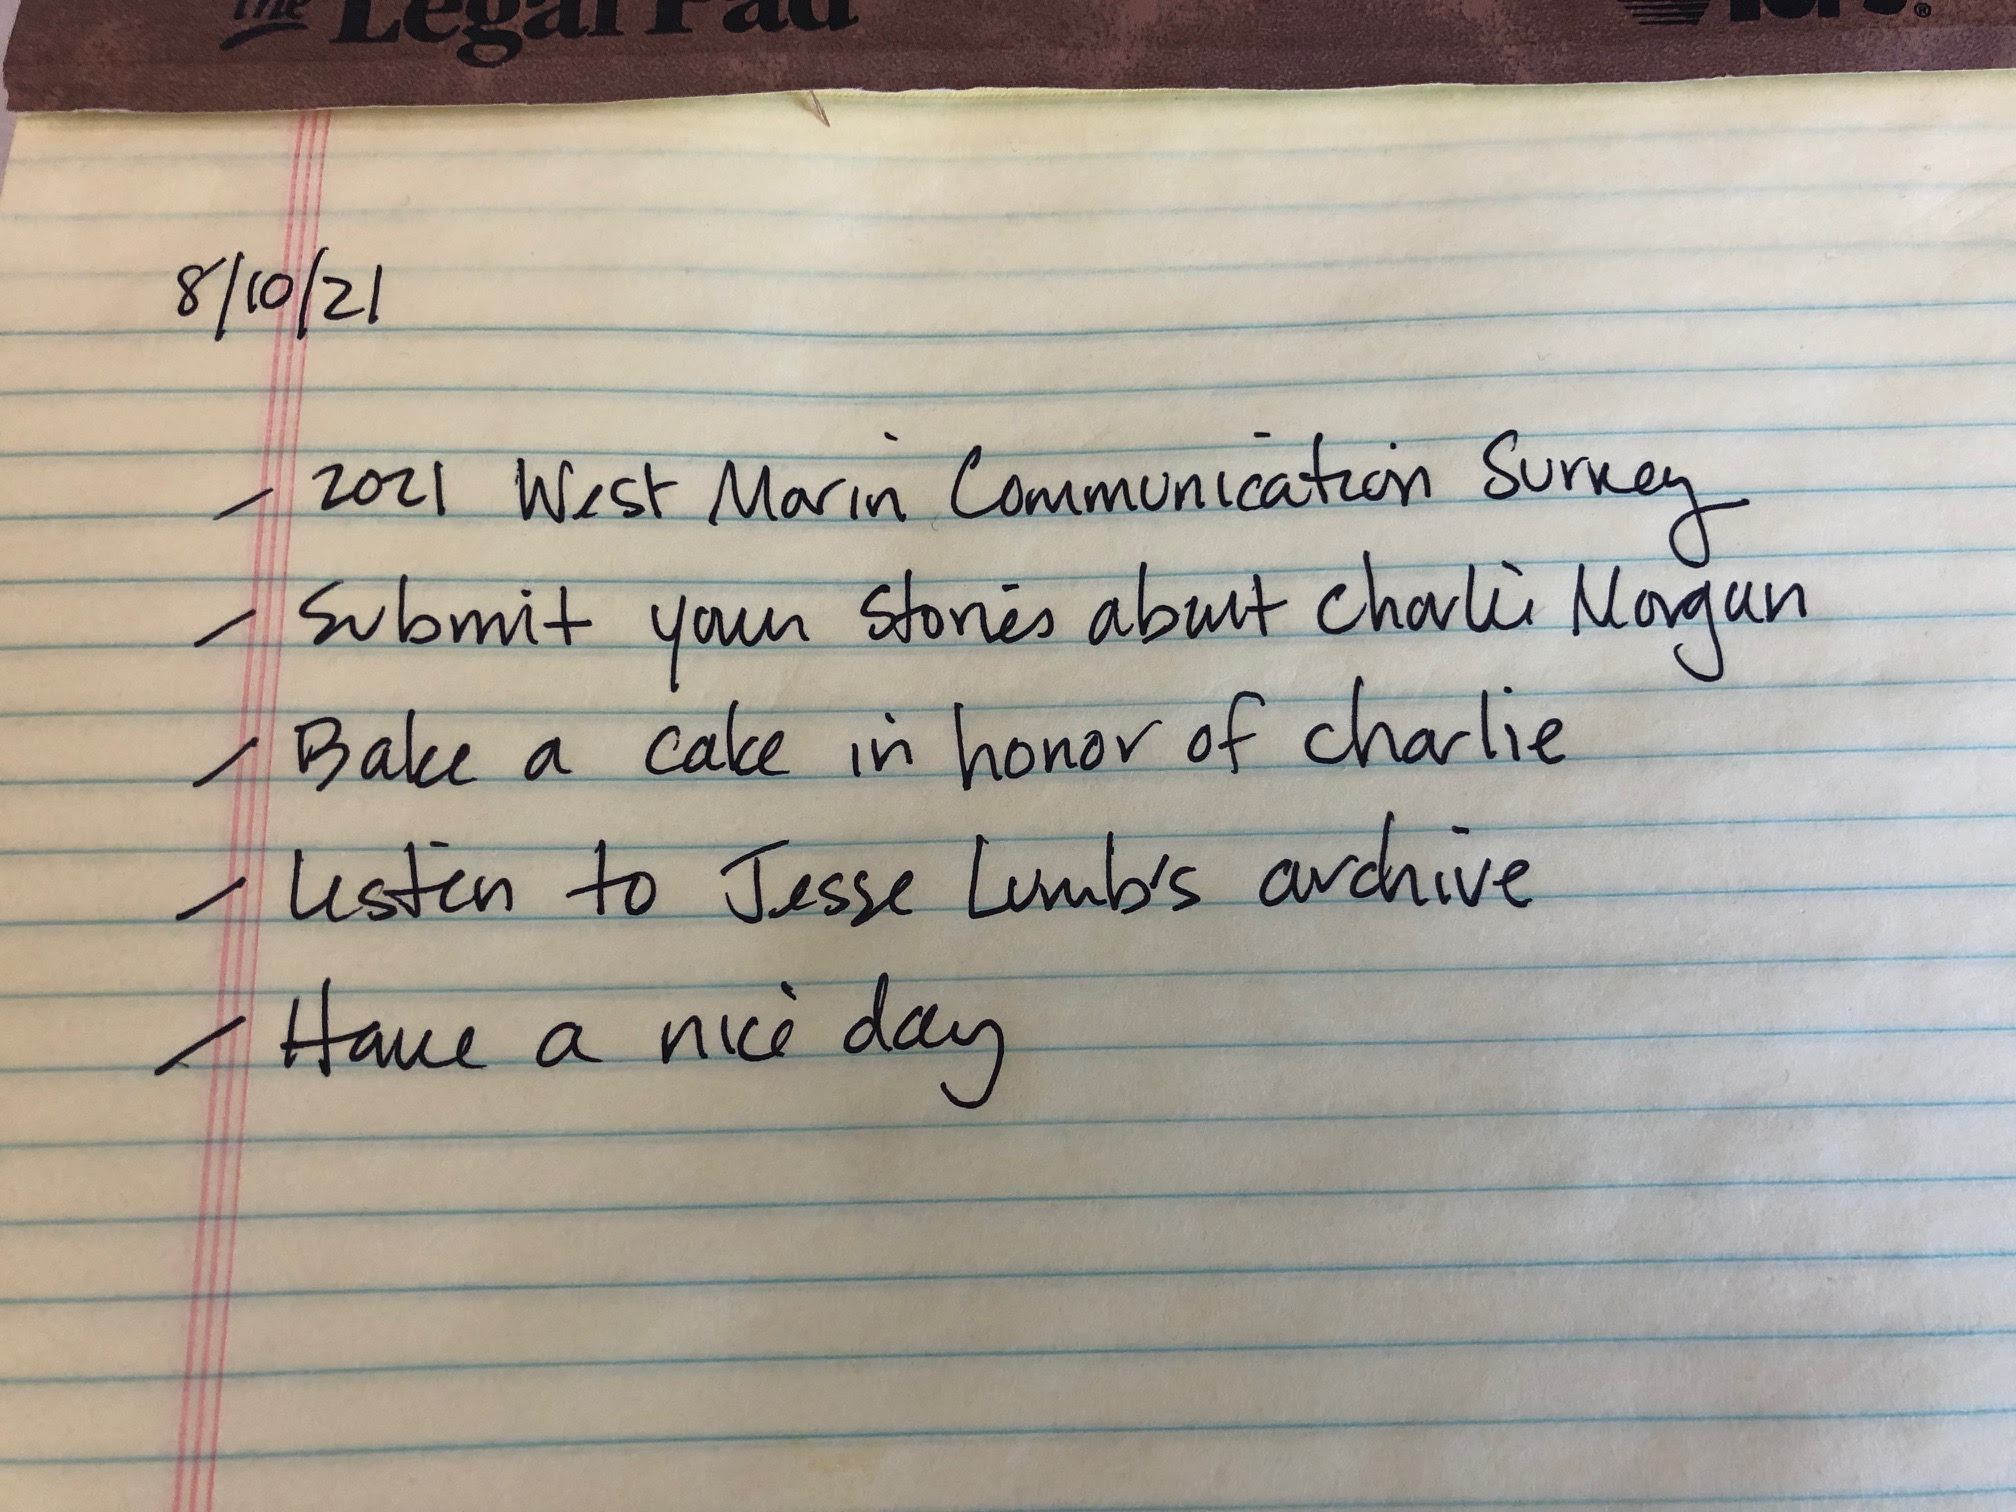 the Legal Pad
8/10/21
- 2021 West Marin Communication Survey
- Submit your stories about Charlie Morgan
- Bake a cake in honor of charlie
- Listen to Jesse Lumb's archive
- Have a nice day